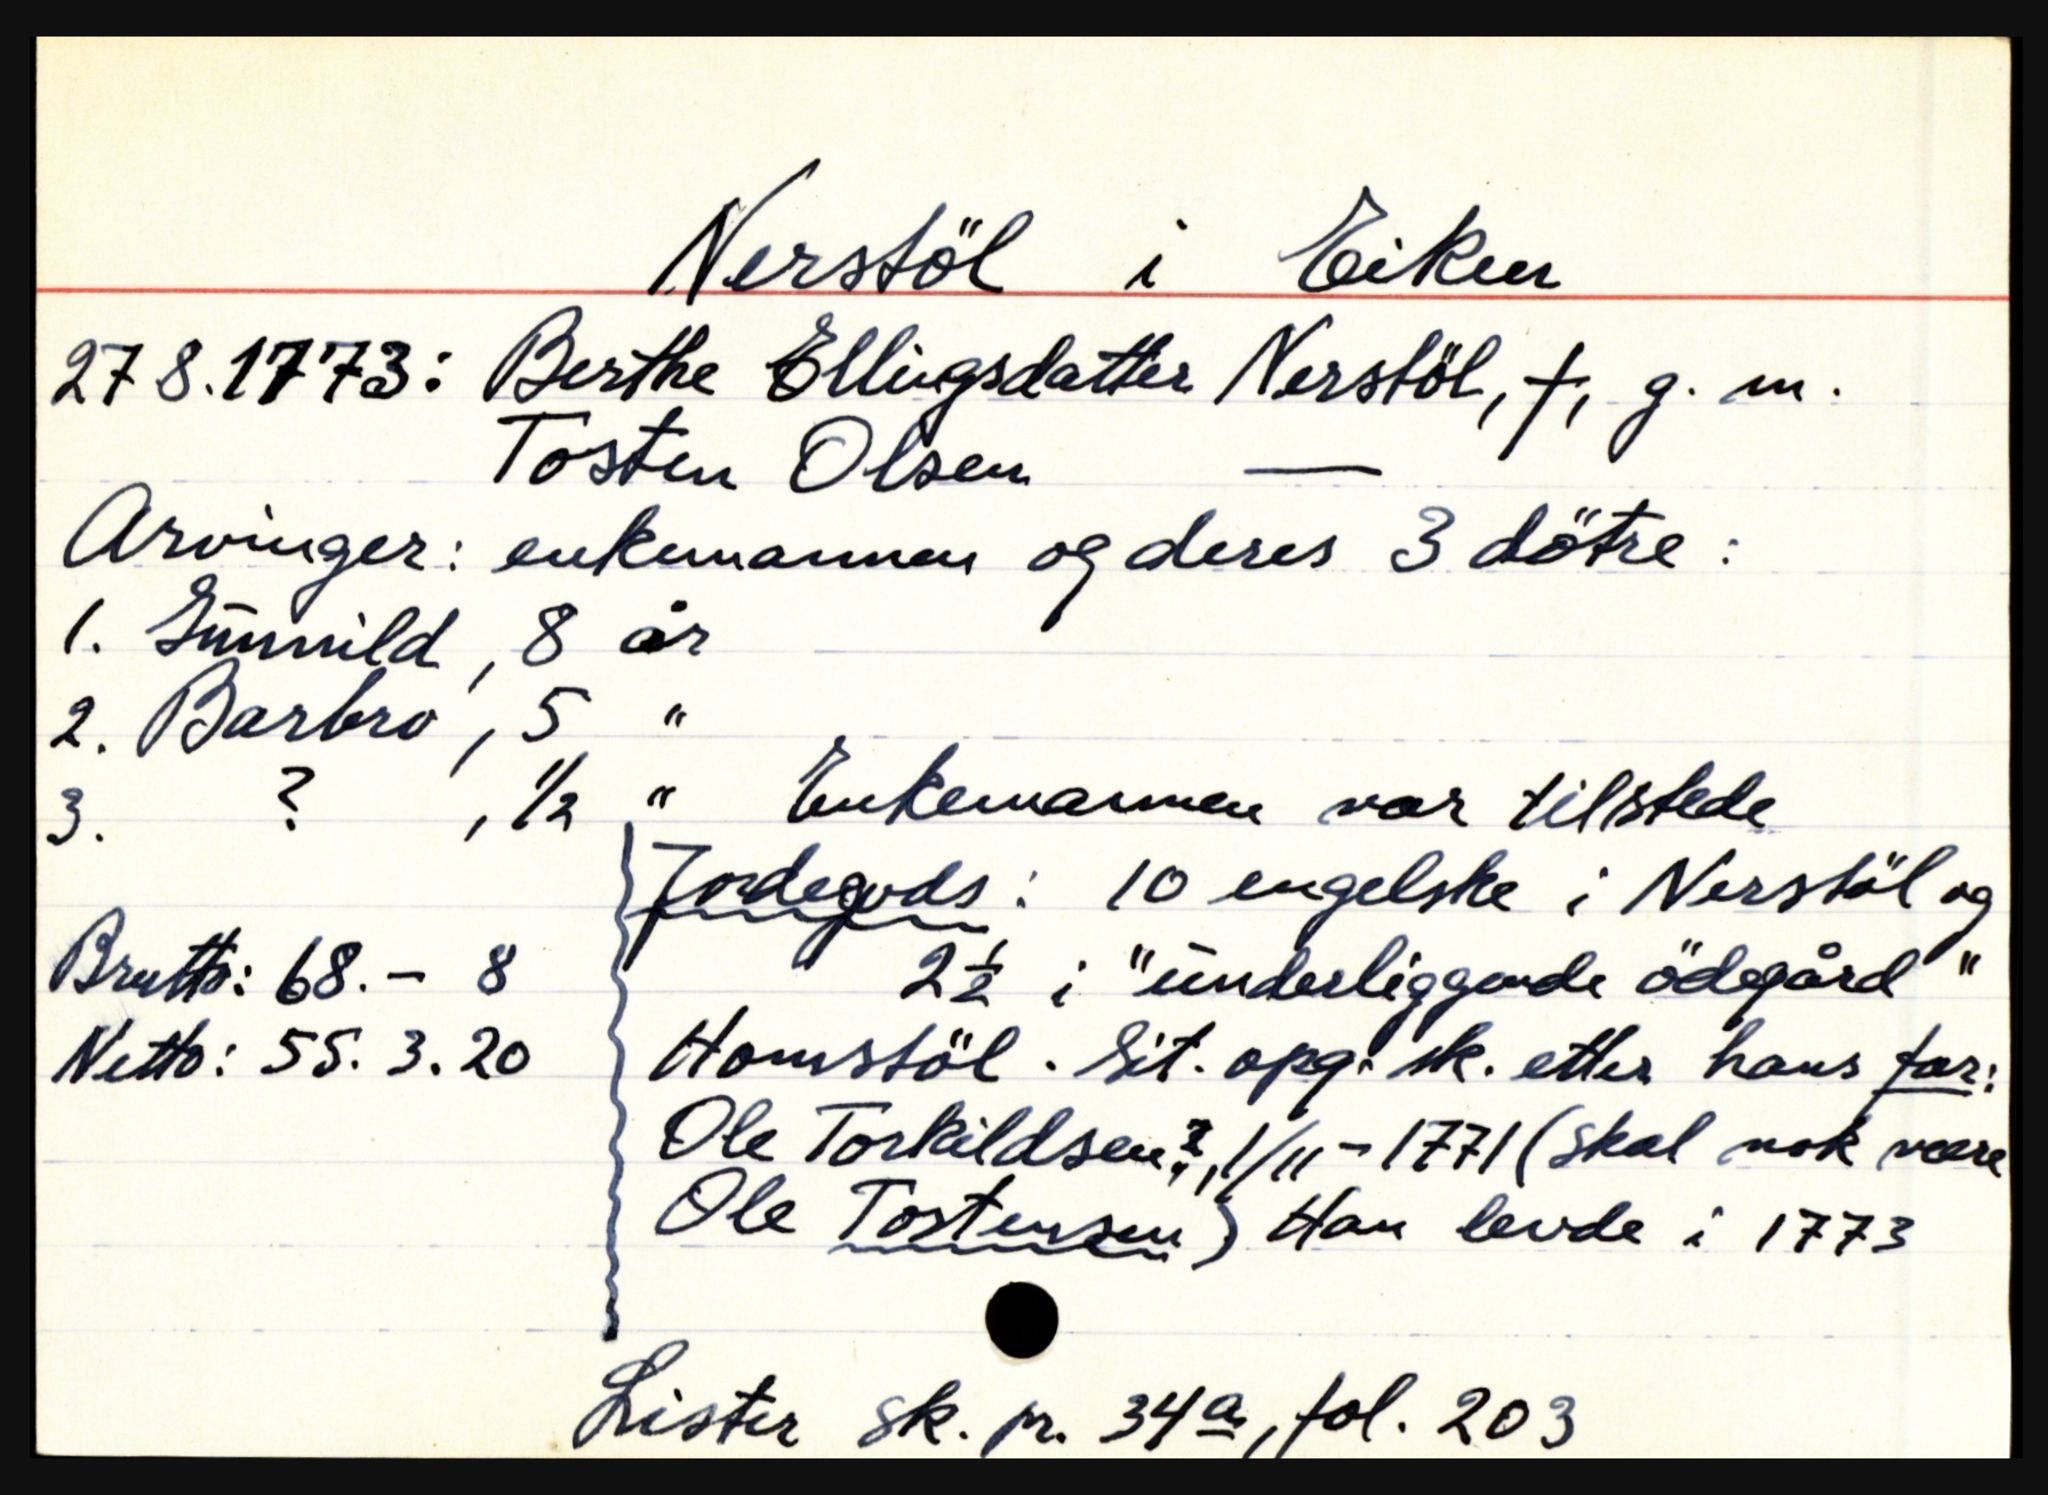 Nerstöl i Eiken
27 8. 1773: Berthe Ellingsdatter Nerstöl, †, g. m.
Tosten Olsen —
Arvinger: enkemannen og deres 3 dötre:
1. Gunnild, 8 år
2. Barbro, 5 "
3. ? , 1/2 " Enkemannen var tilstede
Jordegods: 10 engelske i Nerstöl og
2 1/2 i "underliggende ödegård"
Brutto: 68. - 8
Netto: 55. 3. 20
Homstöl. Sit. opg. sk. etter hans far:
Ole Torkildsen?, 1/11 - 1771 (skal nok være
Ole Tostensen) Han levde i 1773
Lister sk. pr. 34a, fol. 203